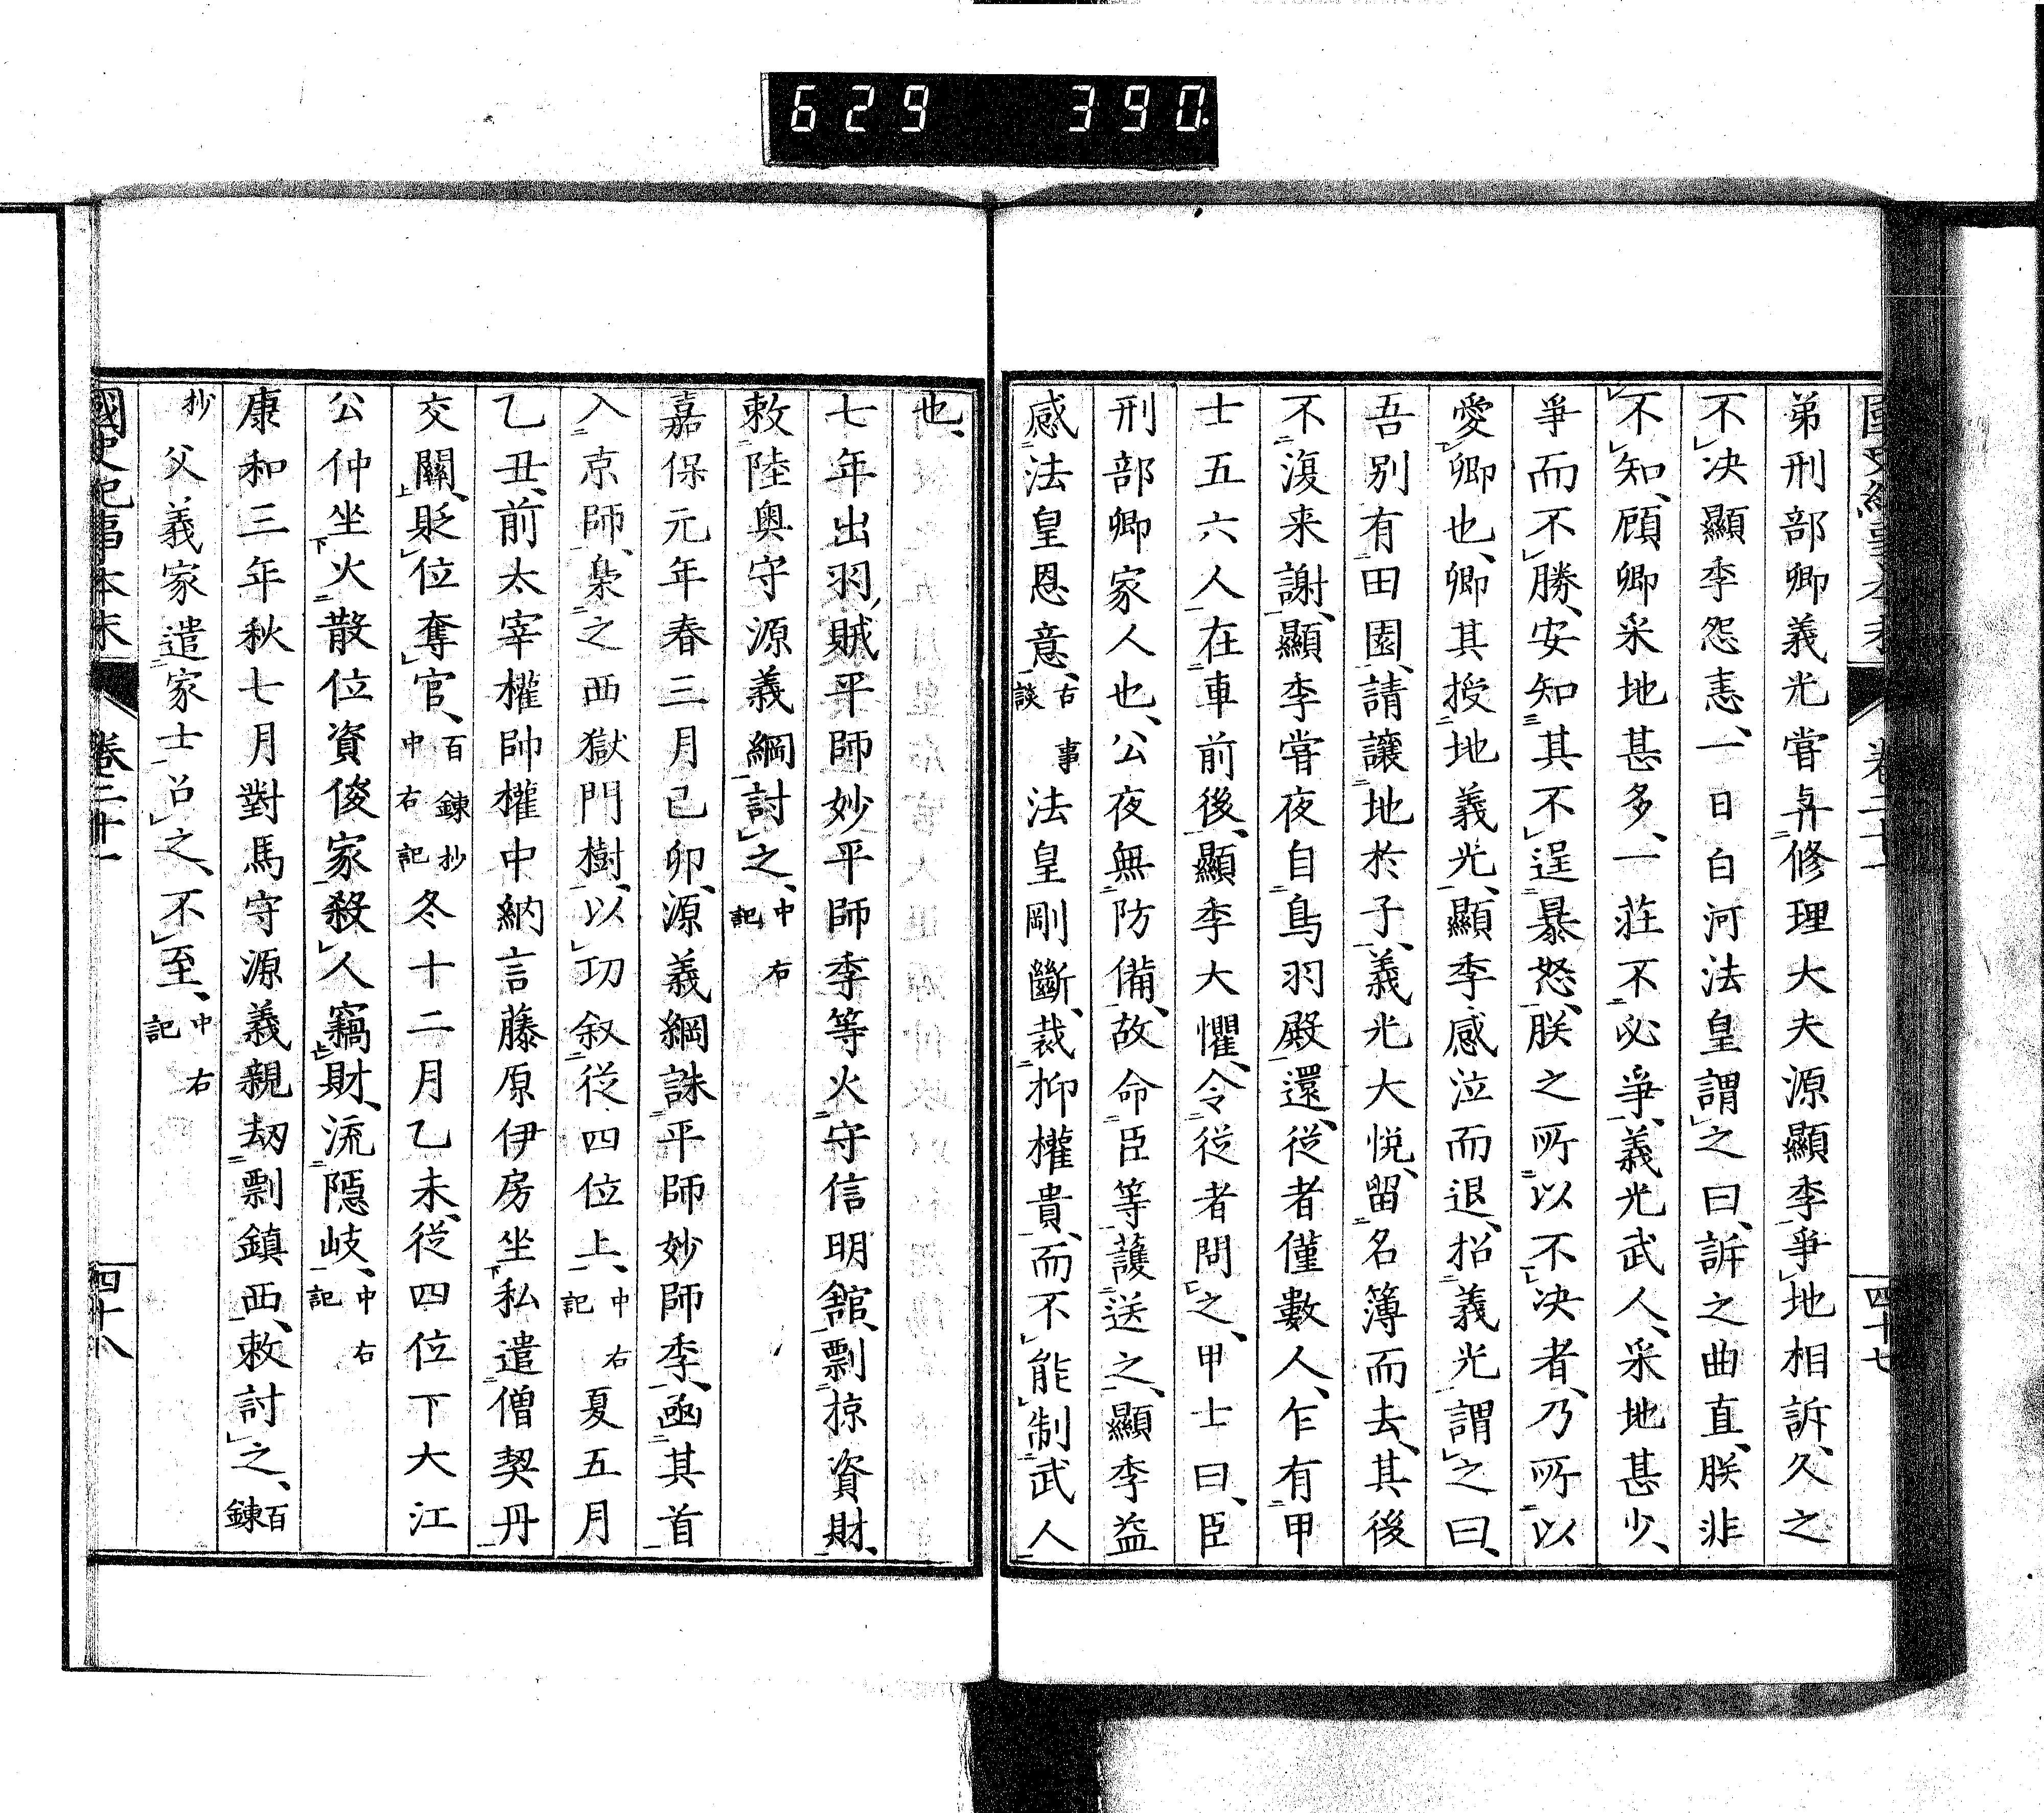 629 390
國史紀事本末 卷二十一 四十七
弟刑部卿義光嘗与修理大夫源顯季爭地相訴、久之
不决顯季怨恚、一日白河法皇謂之曰、訴之曲直、朕非
不知、顧卿采地甚多、一莊不必爭、義光武人、采地甚少、
爭而不勝、安知其不逞暴怒、朕之所以不决者、乃所以
愛卿也、卿其授地義光、顯季感泣而退、招義光謂之曰、
吾别有田園、請讓地於子、義光大悦、留名簿而去、其後
不復来謝、顯季嘗夜自鳥羽殿還、從者僅數人、乍有甲
士五六人在車前後、顯季大懼、令從者問之、甲士曰、臣
刑部卿家人也、公夜無防備、故命臣等護送之、顯季益
感法皇恩意、古事談 法皇剛斷、裁抑權貴、而不能制武人
也、
七年出羽賊平師妙平師季等火守信明舘、剽掠資財、
敕陸奥守源義綱討之、中右記
嘉保元年春三月己卯、源義綱誅平師妙師季、凾其首
入京師、梟之西獄門樹、以功叙從四位上、中右記 夏五月
乙丑、前太宰權帥權中納言藤原伊房坐私遣僧契丹
交關、貶位奪官、百鍊抄中右記 冬十二月乙未、從四位下大江
公仲坐火散位資俊家殺人竊財、流隱岐、中右記
康和三年秋七月對馬守源義親刼剽鎮西、敕討之、百鍊
抄 父義家遣家士召之、不至、中右記
國史紀事本末 卷二十一 四十八